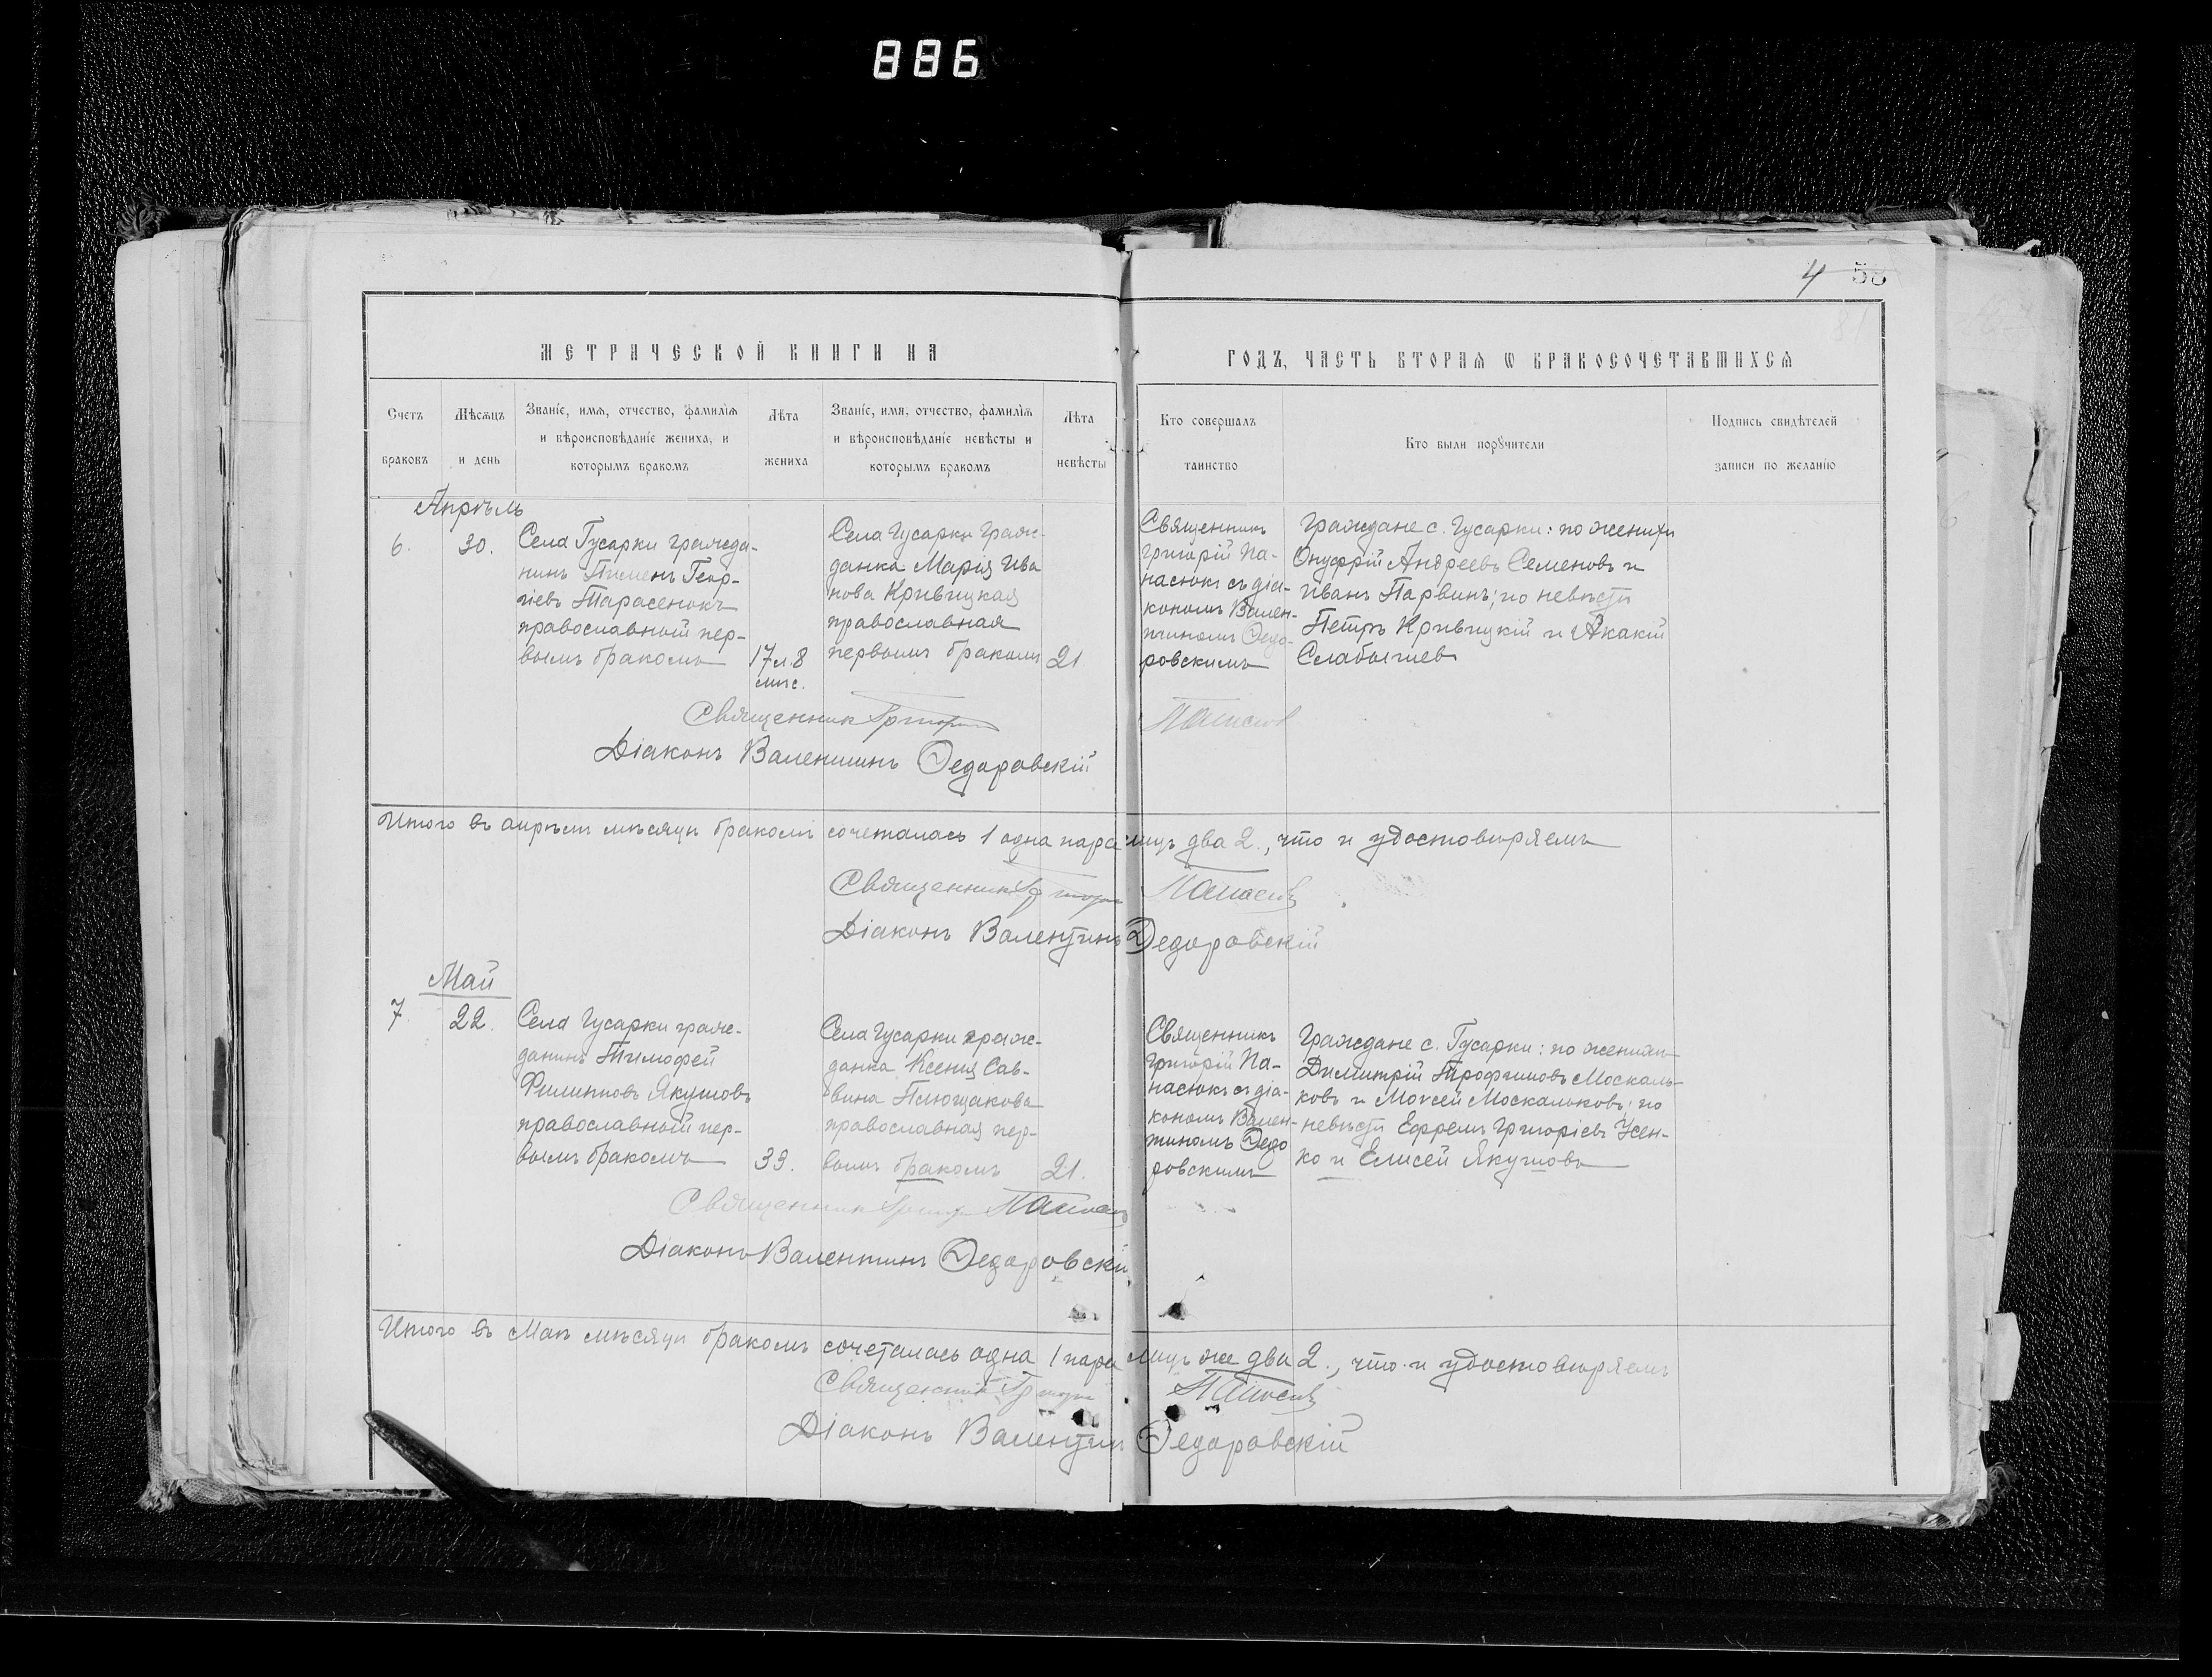 886
4 58
81
МЕТРИЧЕСКОЙ КНИГИ НА
ГОДЪ, ЧАСТЬ ВТОРАѦ Ѡ БРАКОСОЧЕТАВШИХСѦ
Счетъ
браковъ
Мѣсѧцъ
и день
Званіе, имѧ, отчество, фамиліѧ
и вѣроисповѣданіе жениха, и
которымъ бракомъ
Лѣта
жениха
Званіе, имя, отчество, фамиліѧ
и вѣроисповѣданіе невѣсты и
которымъ бракомъ
Лѣта
невѣсты
Кто совершалъ
таинство
Кто были порꙋчители
Подпись свидѣтелей
записи по желанію
Апрѣль
6.
30.
Села Гусарки гражда-
нинъ Пименъ Геор-
гіевъ Тарасенокъ
православный пер-
вымъ бракомъ
17 л. 8
мѣс.
Села Гусарки граж-
данка Марія Ива
нова Кривицкая
православная
первымъ бракомъ
21
Священникъ
Григорій Па-
насюкъ съ діа-
кономъ Вален-
тиномъ Ѳедо-
ровскимъ
Граждане с. Гусарки: по женихѣ
Онуфрій Андреевъ Семеновъ и
Иванъ Парвинъ; по невѣстѣ
Петръ Кривицкій и Акакій
Священник Григорій
Діаконъ Валентинъ Ѳедоровскій
Итого въ апрѣлѣ мѣсяцѣ бракомъ сочеталась 1 одна пара лицъ два 2., что и удостовѣряемъ
Священник Григорій
Діаконъ Валентинъ Ѳедоровскій
Май
7
22.
Села Гусарки граж-
данинъ Тимофей
Филиповъ Якушовъ
православный пер-
вымъ бракомъ
33.
Села Гусарки граж-
данка Ксенія Сав-
вина Плющакова
православная пер-
вымъ бракомъ
21.
Священникъ
Григорій Па-
насюкъ съ діа-
кономъ Вален-
тиномъ Ѳедо
ровскимъ
Граждане с. Гусарки: по женихѣ
Димитрій Трофимовъ Москаль-
ковъ и Моѵсей Москальковъ; по
невѣстѣ Ефремъ Григоріевъ Усен-
ко и Елисей Якушовъ
Священник Григорій
Діаконъ Валентинъ Ѳедоровскій
Итого въ Маѣ мѣсяцѣ бракомъ сочеталась одна 1 пара лицъ же два 2., что и удостовѣряемъ
Священник Григорій
Діаконъ Валентинъ Ѳедоровскій